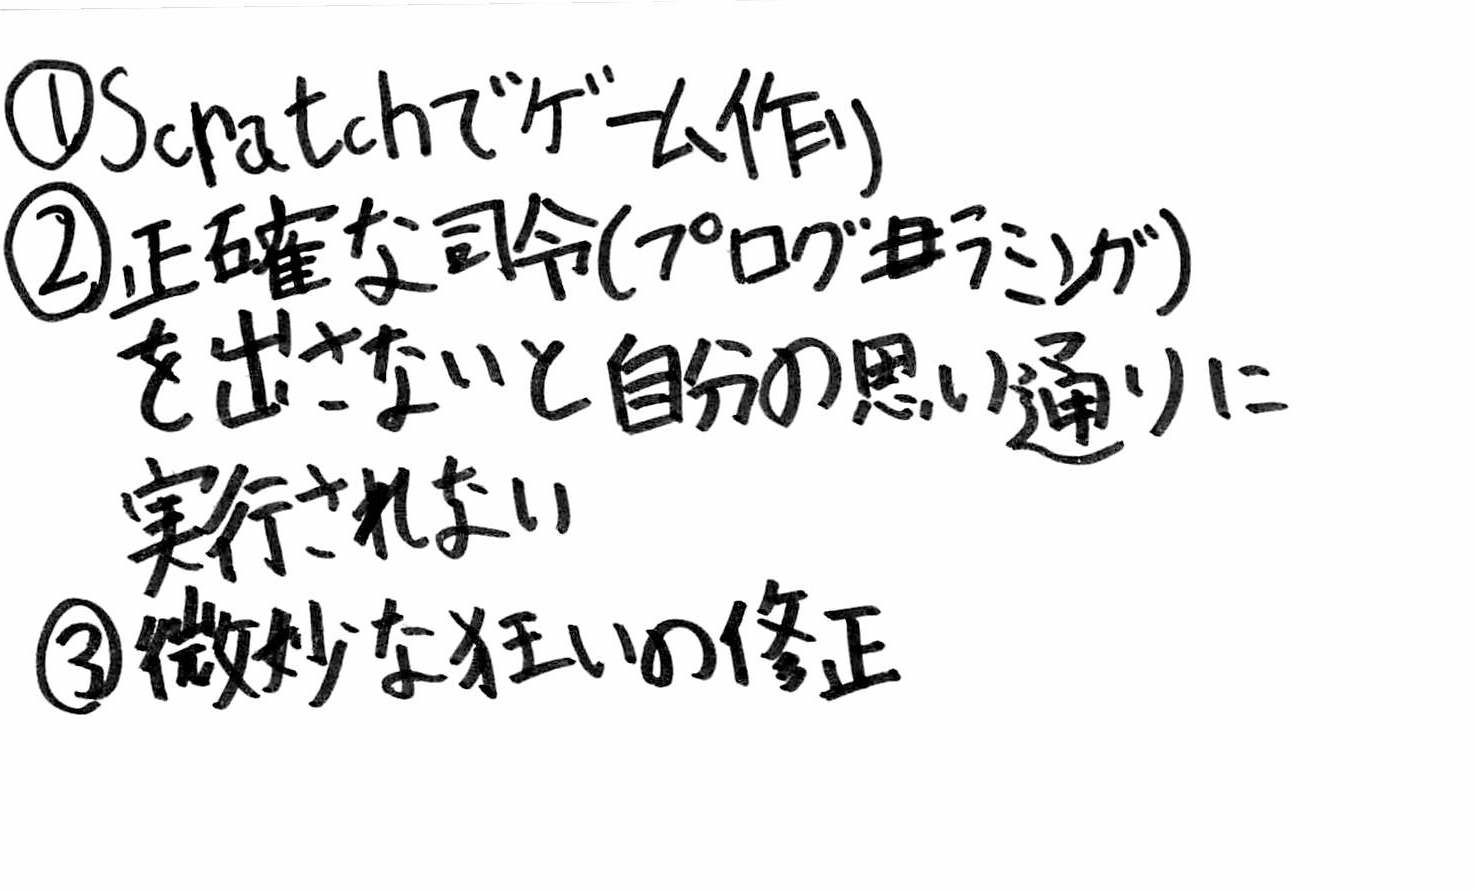 ①Scratchでゲーム作り
②正確な司令(プログラミング)
を出さないと自分の思い通りに
実行されない
③微妙な狂いの修正